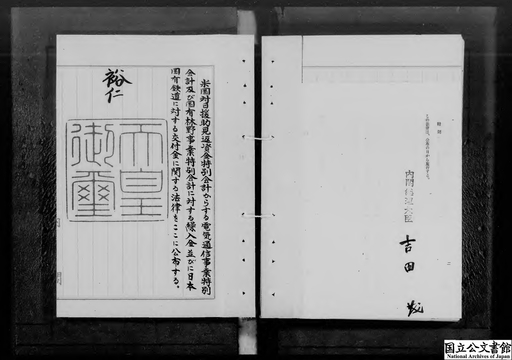 附則
この法律は、公布の日から施行する。
内閣総理大臣
吉田 茂
二
米国対日援助見返資金特別会計からする電気通信事業特別
会計及び国有林野事業特別会計に対する繰入金並びに日本
国有鉄道に対する交付金に関する法律をここに公布する。
裕仁
天皇
御璽
国立公文書館
National Archives of Japan